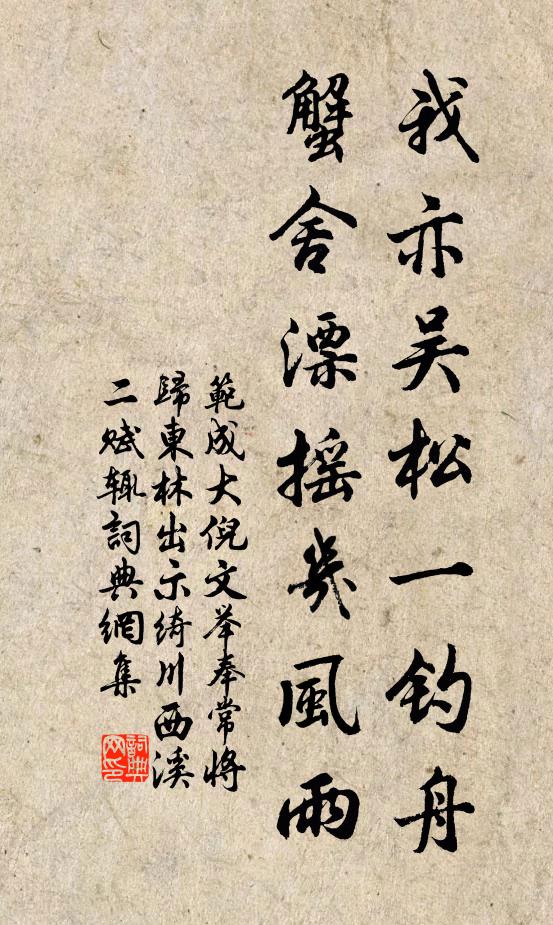 我亦吴松一钓舟
蟹舍漂摇幾風雨
範成大倪文举奉常将
歸東林出示绮川西溪
二赋辄詞典網集
詞典
网印